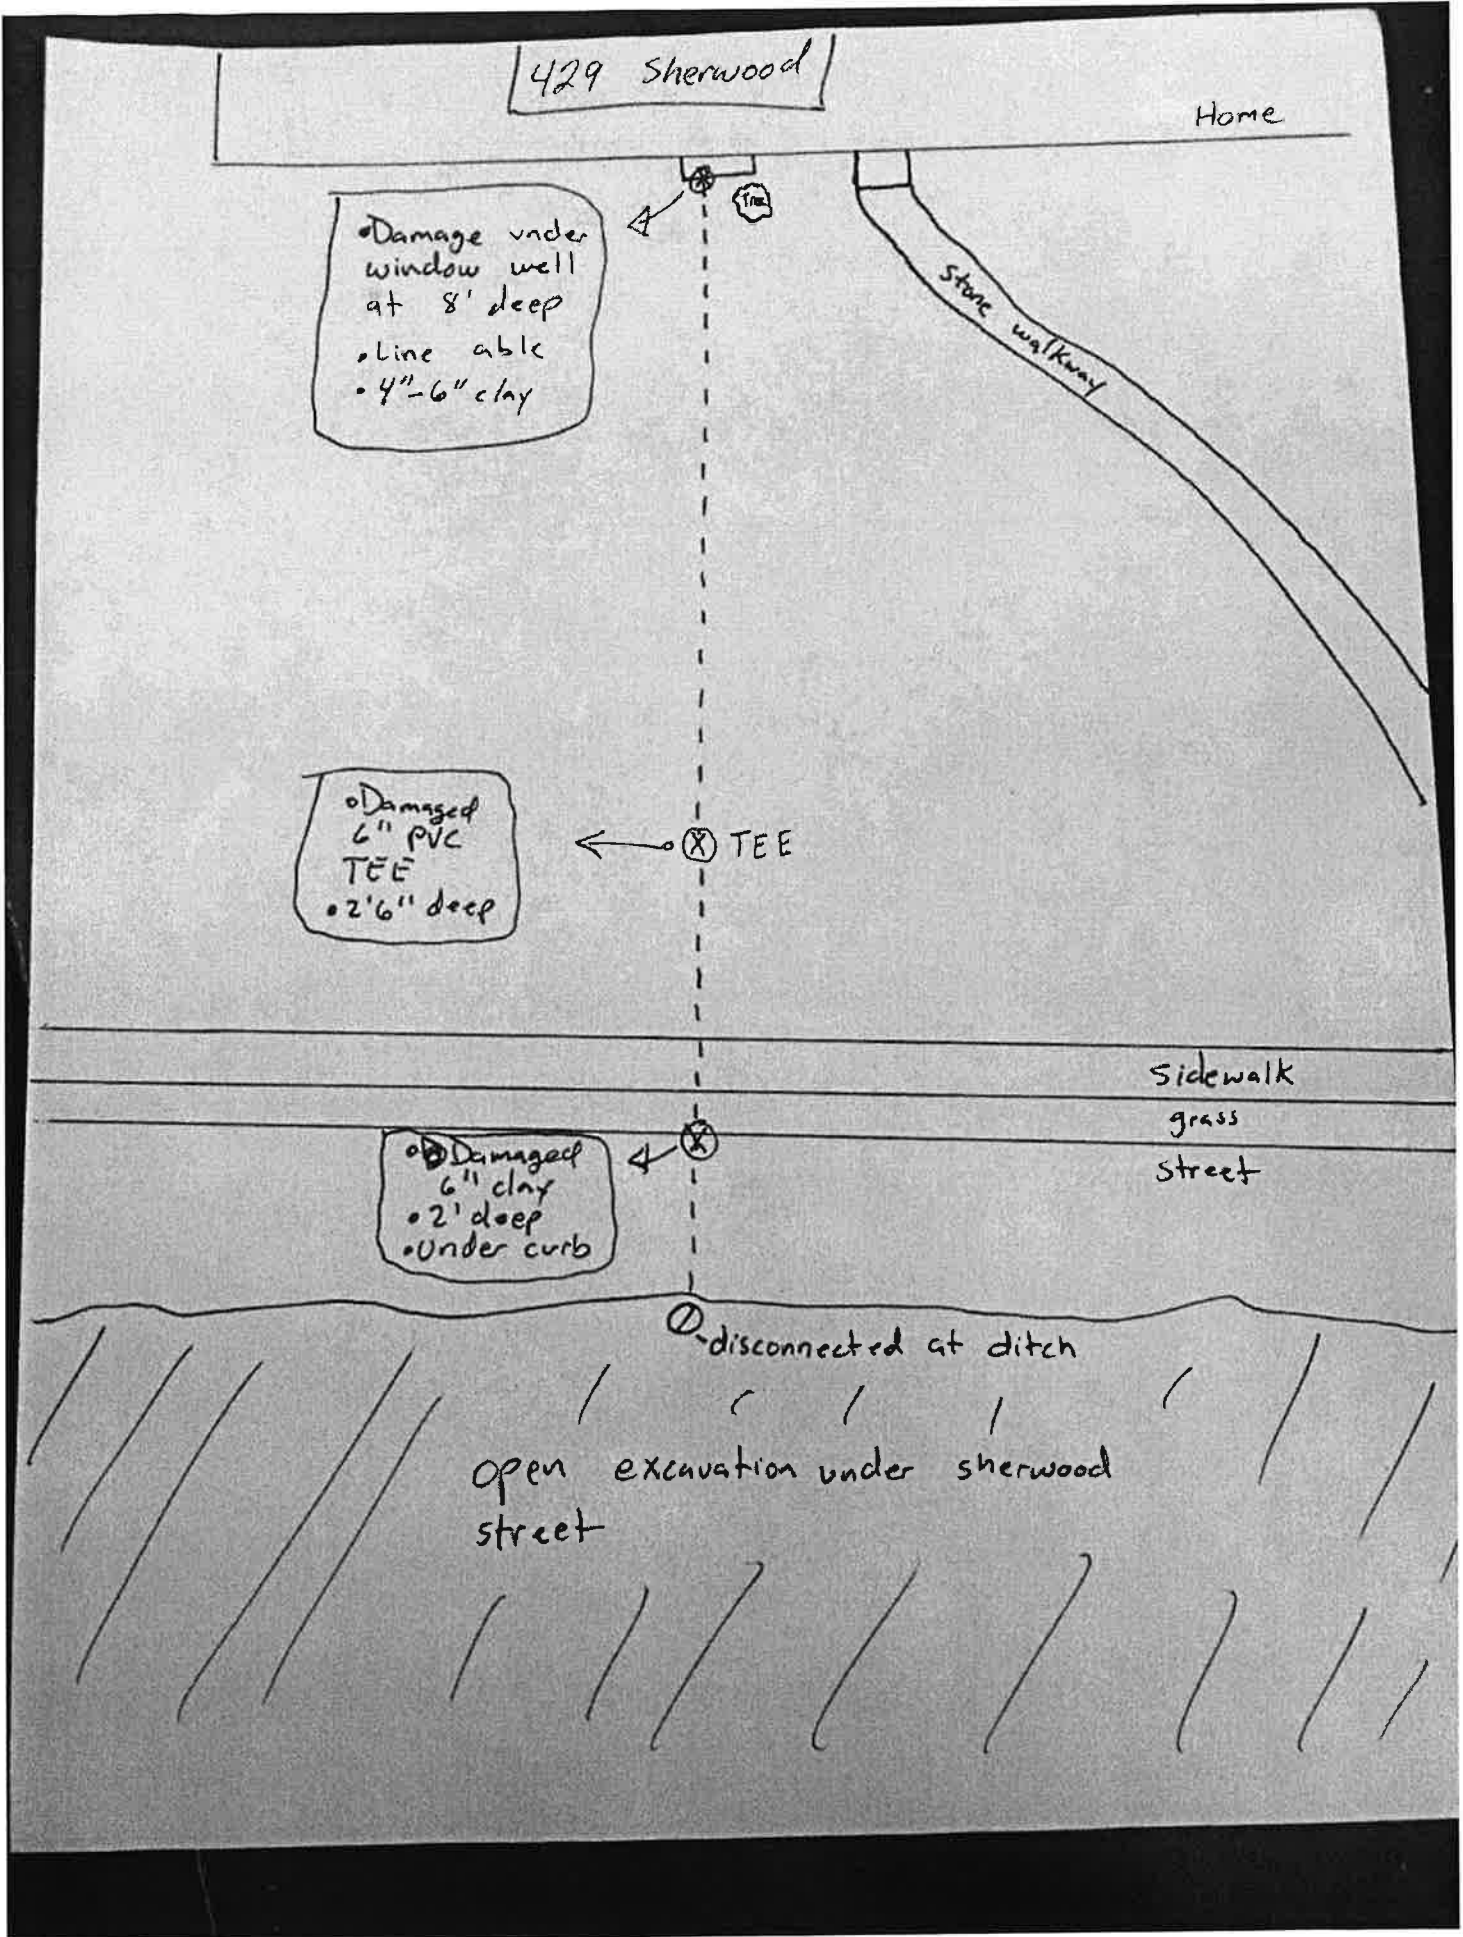 429 Sherwood
Home
•Damage under
window well
at 8' deep
•Line able
•4"-6" clay
Tree
Stone walkway
•Damaged
6" PVC
TEE
•2'6" deep
TEE
Sidewalk
grass
street
•Damaged
6" clay
•2' deep
•Under curb
-disconnected at ditch
open excavation under sherwood
street